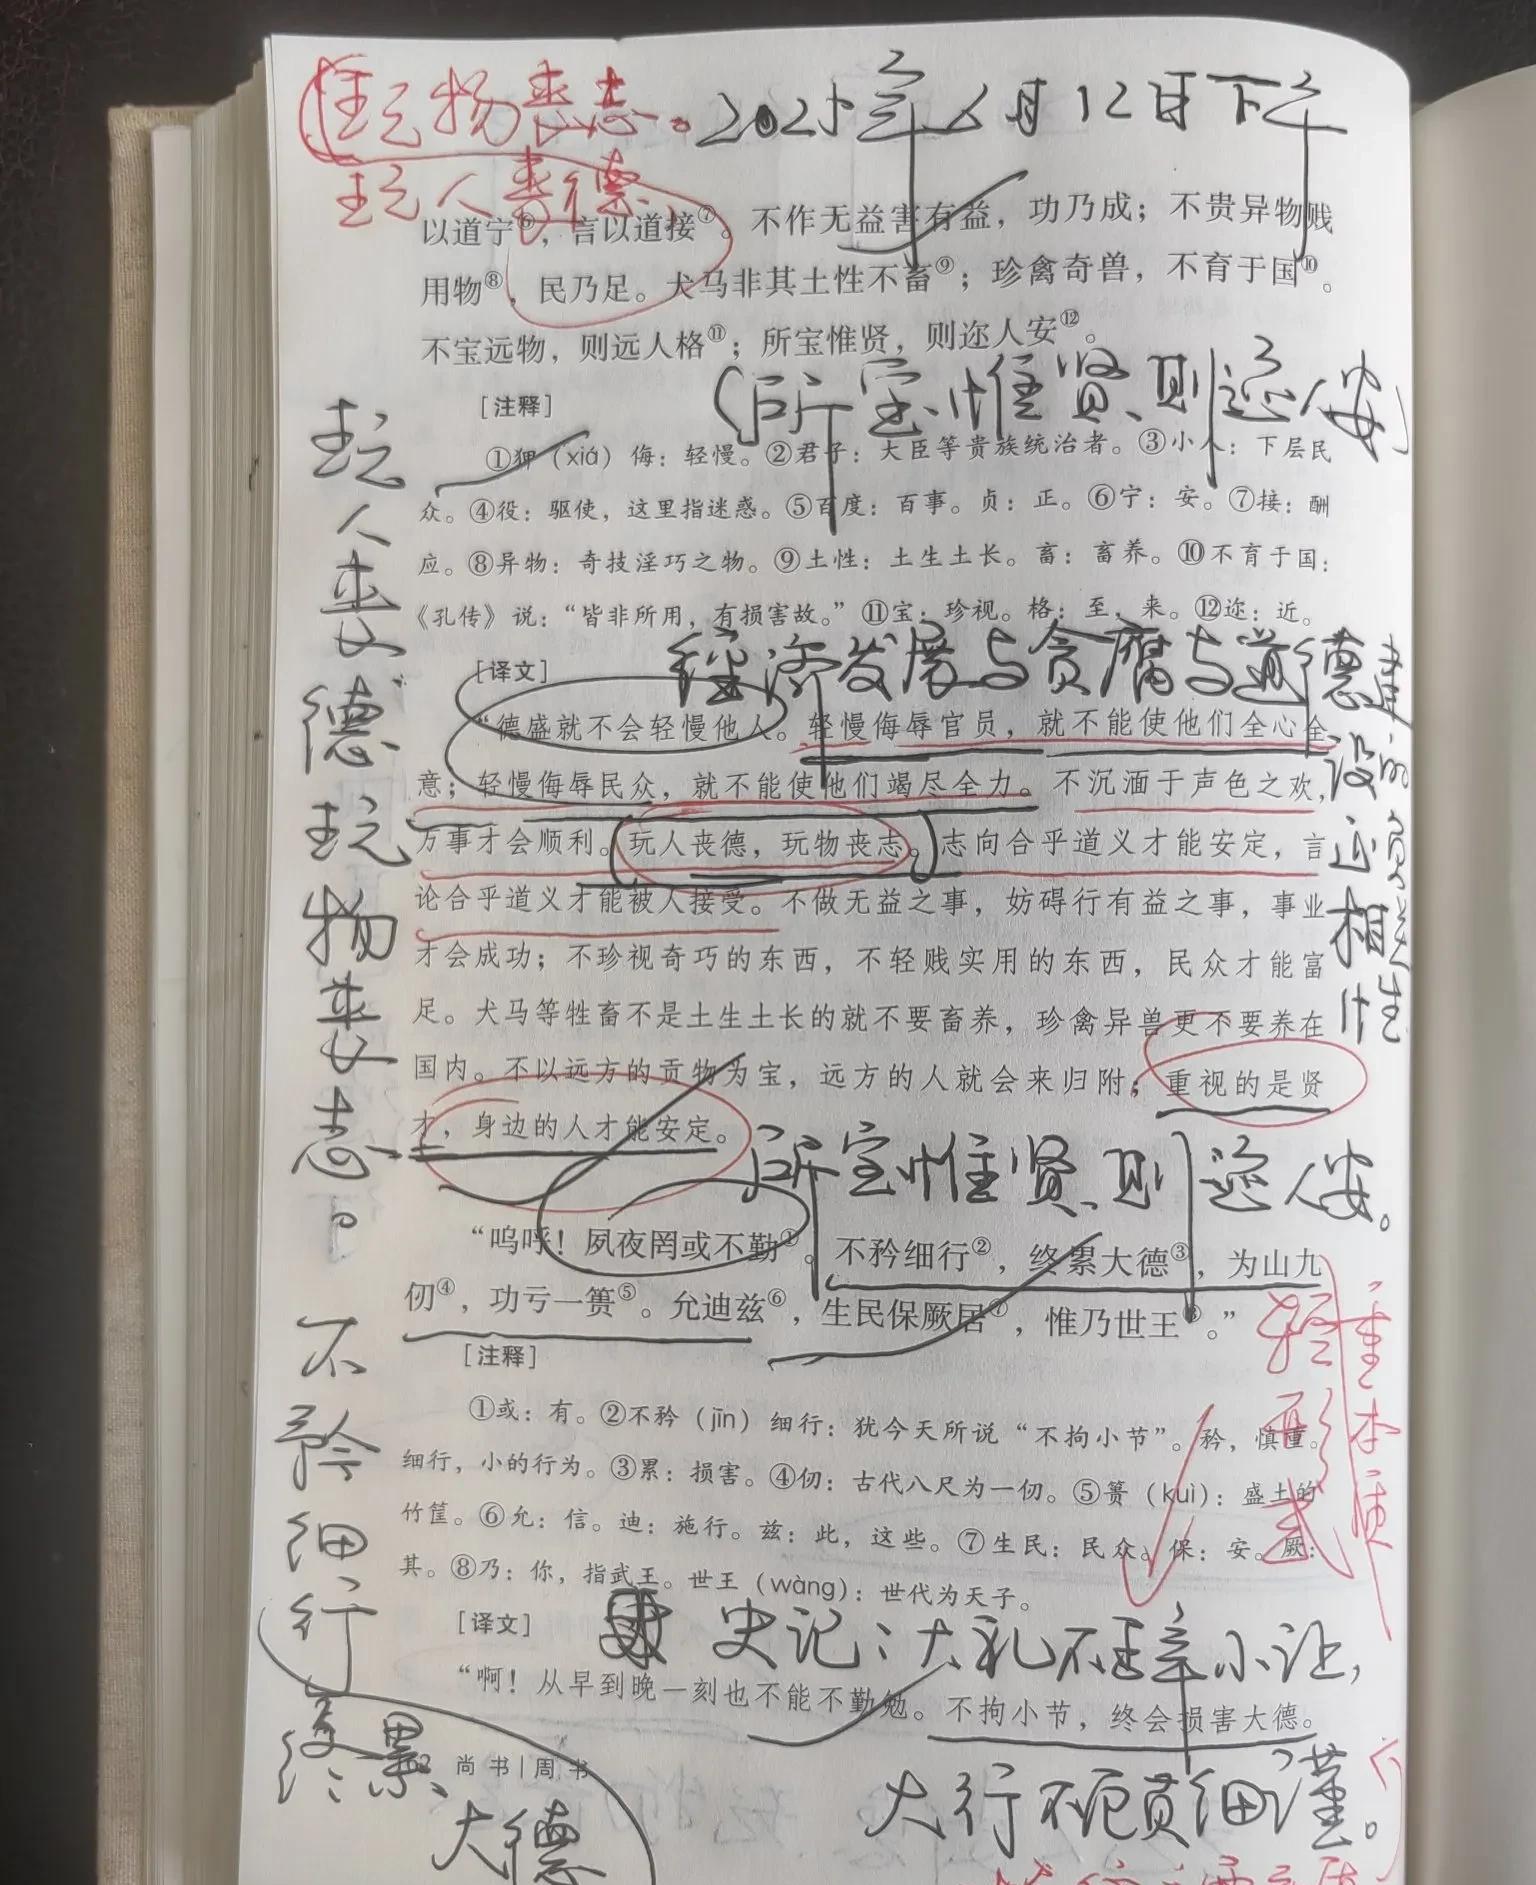 玩物丧志。2025年6月12日下午
玩人丧德,
以道宁⑥，言以道接⑦。不作无益害有益，功乃成；不贵异物贱
用物⑧，民乃足。犬马非其土性不畜⑨；珍禽奇兽，不育于国⑩。
不宝远物，则远人格⑪；所宝惟贤，则迩人安⑫。
（所宝惟贤、则迩人安）
［注释］
①狎（xiá）侮：轻慢。②君子：大臣等贵族统治者。③小人：下层民
众。④役：驱使，这里指迷惑。⑤百度：百事。贞：正。⑥宁：安。⑦接：酬
应。⑧异物：奇技淫巧之物。⑨土性：土生土长。畜：畜养。⑩不育于国：
《孔传》说：“皆非所用，有损害故。”⑪宝：珍视。格：至，来。⑫迩：近。
经济发展与贪腐与道德建
设的负
近相关
性
［译文］
“德盛就不会轻慢他人。轻慢侮辱官员，就不能使他们全心全
意；轻慢侮辱民众，就不能使他们竭尽全力。不沉湎于声色之欢，
万事才会顺利。玩人丧德，玩物丧志。志向合乎道义才能安定，言
论合乎道义才能被人接受。不做无益之事，妨碍行有益之事，事业
才会成功；不珍视奇巧的东西，不轻贱实用的东西，民众才能富
足。犬马等牲畜不是土生土长的就不要畜养，珍禽异兽更不要养在
国内。不以远方的贡物为宝，远方的人就会来归附；重视的是贤
才，身边的人才能安定。
所宝惟贤、则迩人安。
“呜呼！夙夜罔或不勤①。不矜细行②，终累大德③，为山九
仞④，功亏一篑⑤。允迪兹⑥，生民保厥居⑦，惟乃世王⑧。”
［注释］
①或：有。②不矜（jīn）细行：犹今天所说“不拘小节”。矜，慎重。
细行，小的行为。③累：损害。④仞：古代八尺为一仞。⑤篑（kuì）：盛土的
竹筐。⑥允：信。迪：施行。兹：此，这些。⑦生民：民众。保：安。厥：
其。⑧乃：你，指武王。世王（wàng）：世代为天子。
重本质
轻形式
［译文］
史记：大礼不辞小让，
“啊！从早到晚一刻也不能不勤勉。不拘小节，终会损害大德。
大行不顾细谨。
尚书|周书
玩人丧德玩物丧志。
不矜细行
终累
大德